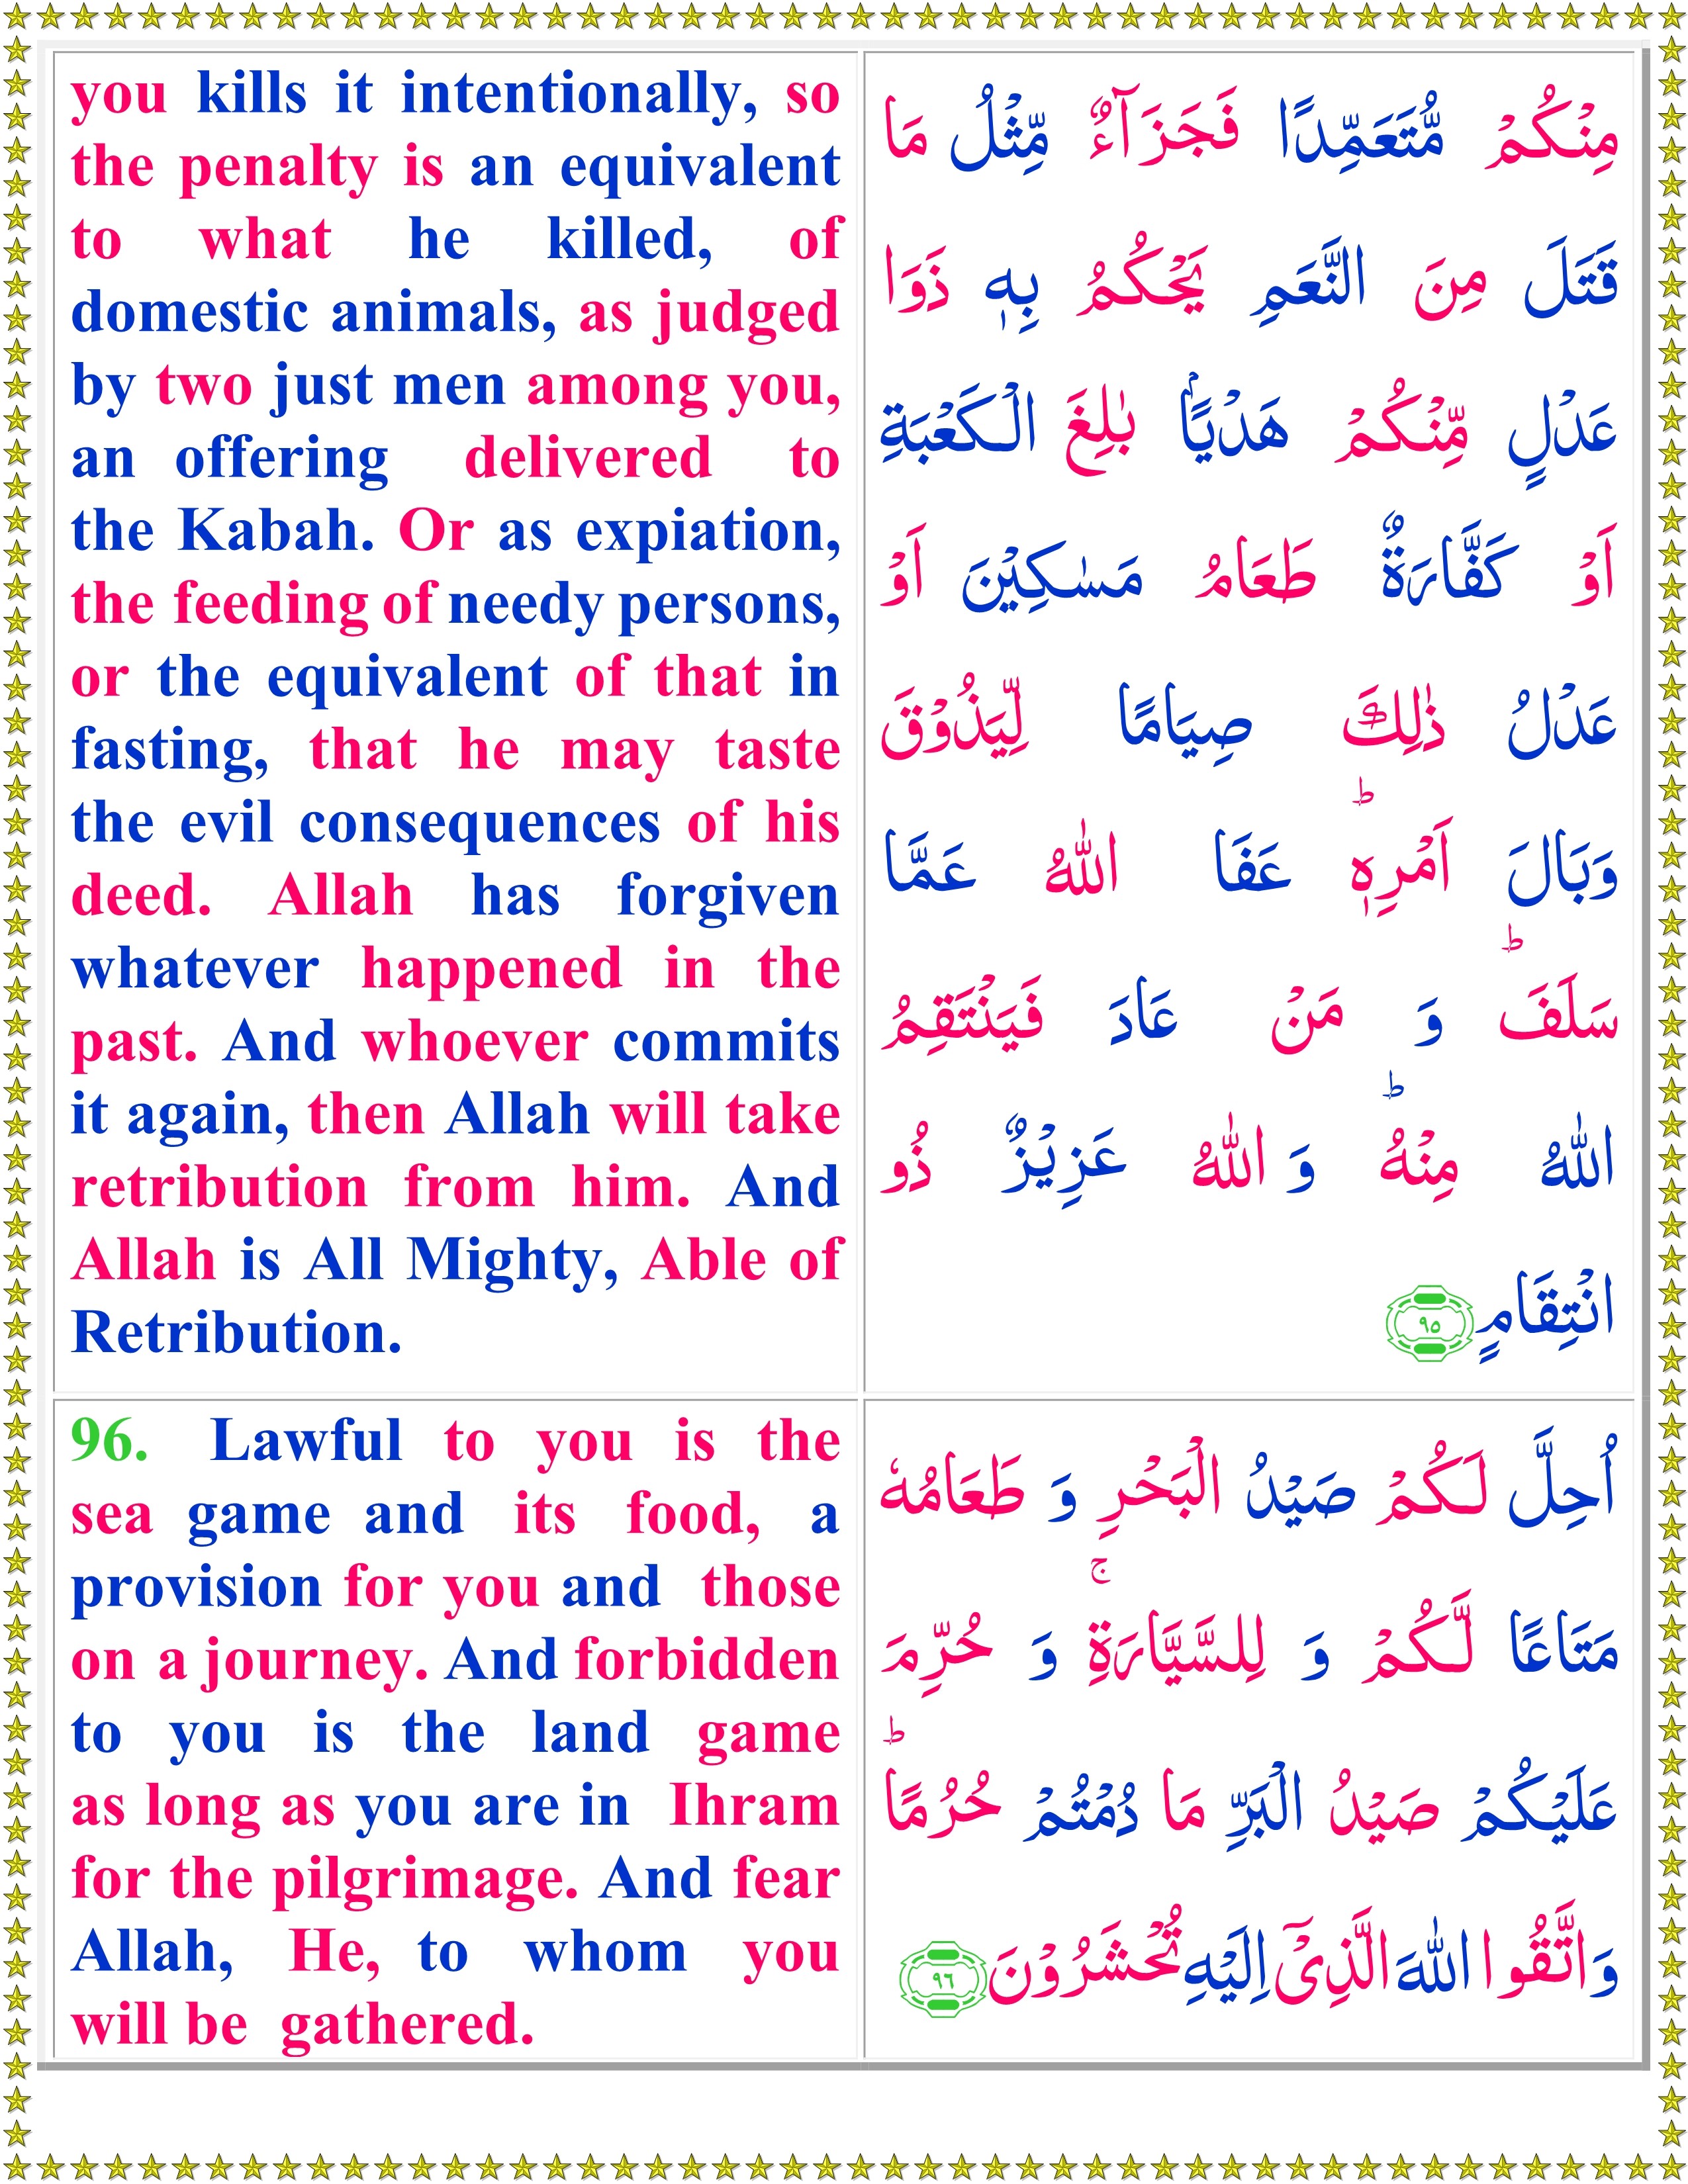 you kills it intentionally, so
the penalty is an equivalent
to what he killed, of
domestic animals, as judged
by two just men among you,
an offering delivered to
the Kabah. Or as expiation,
the feeding of needy persons,
or the equivalent of that in
fasting, that he may taste
the evil consequences of his
deed. Allah has forgiven
whatever happened in the
past. And whoever commits
it again, then Allah will take
retribution from him. And
Allah is All Mighty, Able of
Retribution.
مِنْكُمْ مُّتَعَمِّدًا فَجَزَآءٌ مِّثْلُ مَا
قَتَلَ مِنَ النَّعَمِ يَحْكُمُ بِهٖ ذَوَا
عَدْلٍ مِّنْكُمْ هَدْيًۢا بٰلِغَ الْكَعْبَةِ
اَوْ كَفَّارَةٌ طَعَامُ مَسٰكِيْنَ اَوْ
عَدْلُ ذٰلِكَ صِيَامًا لِّيَذُوْقَ
وَبَالَ اَمْرِهٖؕ عَفَا اللّٰهُ عَمَّا
سَلَفَؕ وَ مَنْ عَادَ فَيَنْتَقِمُ
اللّٰهُ مِنْهُؕ وَ اللّٰهُ عَزِيْزٌ ذُو
انْتِقَامٍ ٩٥
96. Lawful to you is the
sea game and its food, a
provision for you and those
on a journey. And forbidden
to you is the land game
as long as you are in Ihram
for the pilgrimage. And fear
Allah, He, to whom you
will be gathered.
اُحِلَّ لَكُمْ صَيْدُ الْبَحْرِ وَ طَعَامُهٗ
مَتَاعًا لَّكُمْ وَ لِلسَّيَّارَةِۚ وَ حُرِّمَ
عَلَيْكُمْ صَيْدُ الْبَرِّ مَا دُمْتُمْ حُرُمًاؕ
وَاتَّقُوا اللّٰهَ الَّذِىْۤ اِلَيْهِ تُحْشَرُوْنَ ٩٦